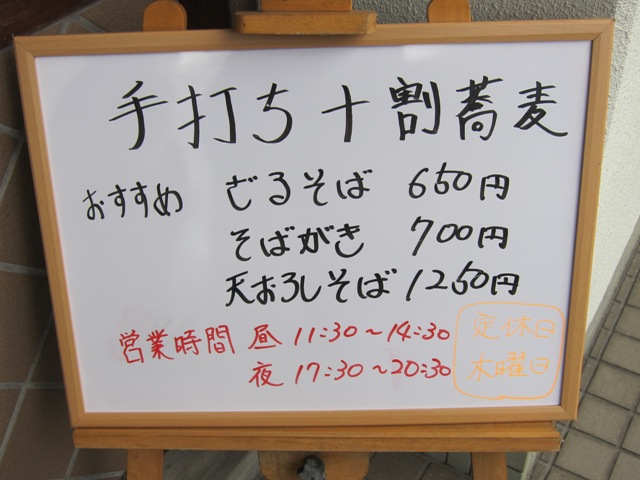 手打ち十割蕎麦
おすすめ ざるそば 650円
そばがき 700円
天おろしそば 1250円
営業時間 昼 11:30～14:30
夜 17:30～20:30
定休日
木曜日